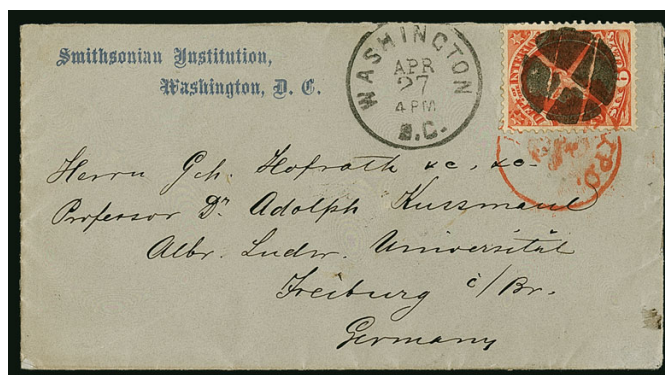 Smithsonian Institution,
Washington, D. C.
WASHINGTON
APR
27
4 PM
D.C.
Herrn Geh. Hofrath &c, &c.
Professor Dr. Adolph Kussmaul
Albr. Ludw. Universität
Freiburg i/Br.
Germany